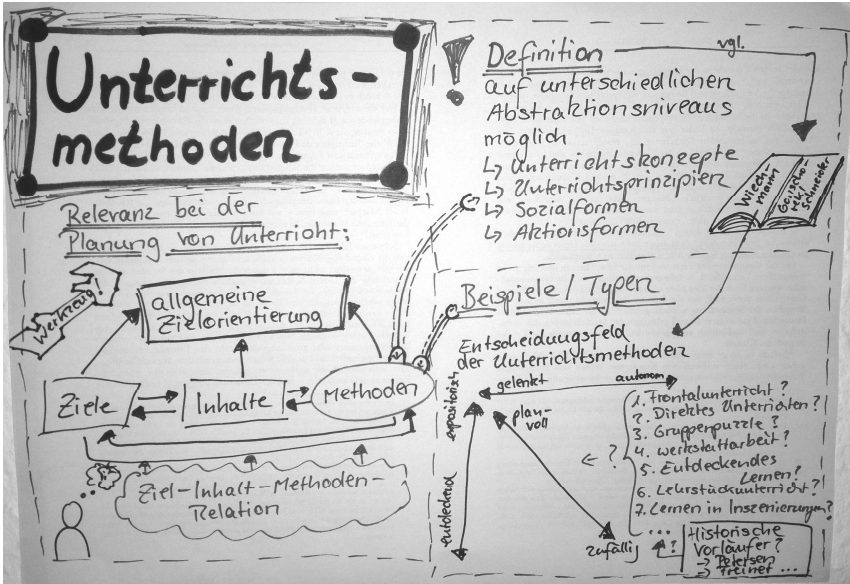 Unterrichts-
methoden
Relevanz bei der
Planung von Unterricht:
Werkzeug!
allgemeine
Zielorientierung
Ziele
Inhalte
Methoden
Ziel-Inhalt-Methoden-
Relation
!
Definition
vgl.
auf unterschiedlichen
Abstraktionsniveaus
möglich
↳ Unterrichtskonzepte
↳ Unterrichtsprinzipien
↳ Sozialformen
↳ Aktionsformen
Wiech-
mann
schneider
Beispiele / Typen
Entscheidungsfeld
der Unterrichtsmethoden
gelenkt
autonom
expositorisch
entdeckend
plan-
voll
zufällig
← ?
1. Frontalunterricht?
2. Direktes Unterrichten?
3. Gruppenpuzzle?
4. Werkstattarbeit?
5. Entdeckendes
Lernen?
6. Lehrstückunterricht?
7. Lernen in Inszenierungen?
...
?
Historische
Vorläufer?
→ Petersen
→ Freinet ...